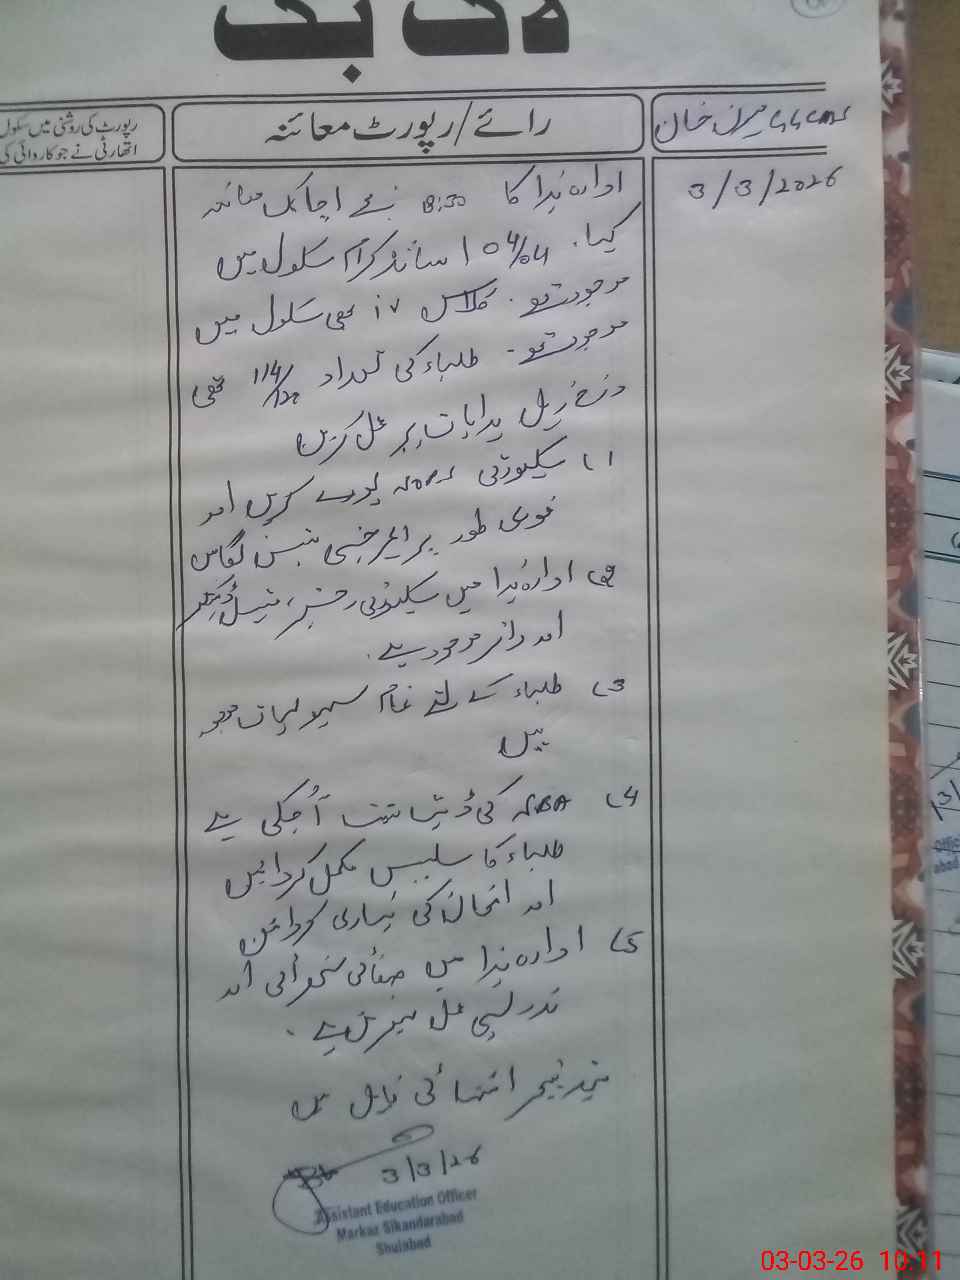 لاگ بک
GGCMS میرل خان
رائے/رپورٹ معائنہ
رپورٹ کی روشنی میں سکول
اتھارٹی نے جو کاروائی کی
3/3/2026
ادارہ ہذا کا 8:30 بجے اچانک معائنہ
کیا۔ 04/04 اساتذہ کرام سکول میں
موجود تھے۔ کلاس iv بھی سکول میں
موجود تھے۔ طلباء کی تعداد 114/122 تھی
درج ذیل ہدایات پر عمل کریں
1) سیکیورٹی SOPs پورے کریں اور
فوری طور پر ایمرجنسی لگائیں
2) ادارہ ہذا میں سیکیورٹی رجسٹر، میٹل ڈیٹیکٹر
اور موجود ہے۔
3) طلباء کے لئے تمام سہولیات موجود
ہیں
4) SBA کی ڈیٹ شیٹ آ چکی ہے
طلباء کا سلیبس مکمل کروائیں
اور امتحان کی تیاری کروائیں
5) ادارہ ہذا میں صفائی ستھرائی اور
تدریسی عمل بہترین ہے۔
ہیڈ ٹیچر انتہائی قابل ہیں
3/3/26
Assistant Education Officer
Markaz Sikandarabad
Shujabad
03-03-26 10:11